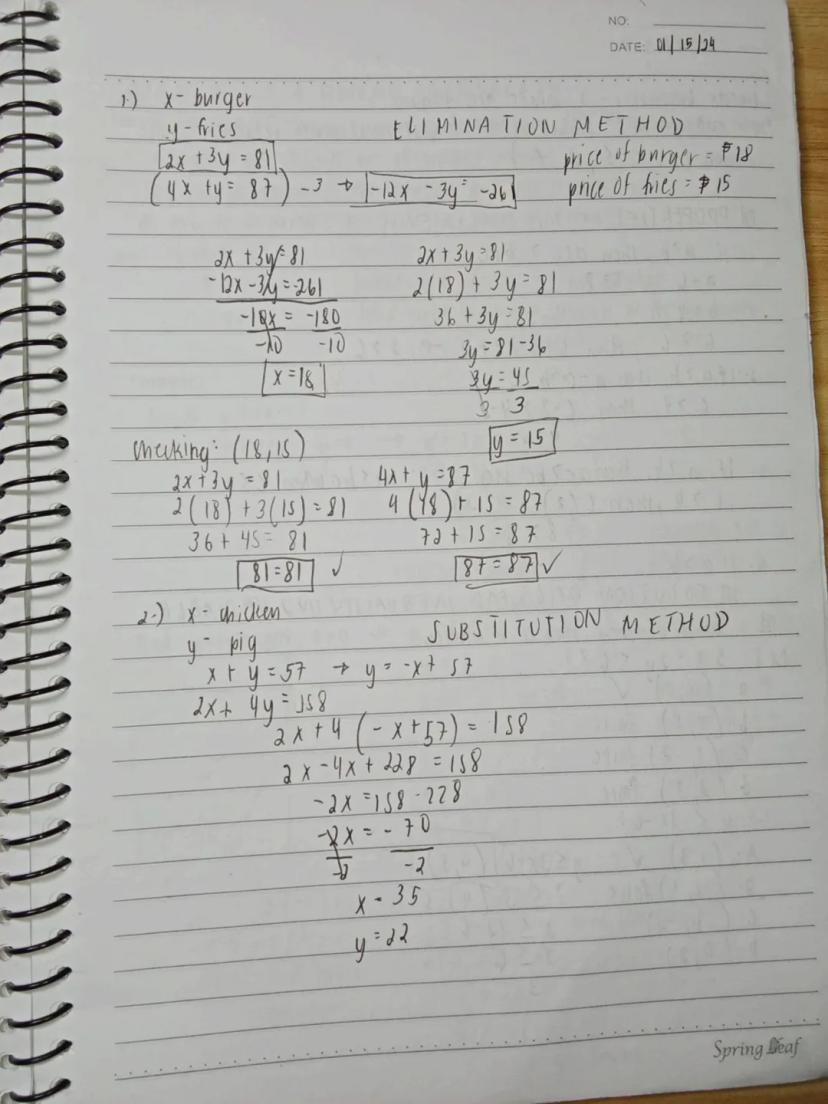 NO:
DATE: 01/15/24
1.) x - burger
y - fries
ELIMINATION METHOD
2x + 3y = 81
price of burger = ₱18
(4x + y = 87) -3 → -12x - 3y = -261
price of fries = ₱15
2x + 3y = 81
-12x - 3y = 261
-10x = -180
-10 -10
x = 18
2x + 3y = 81
2(18) + 3y = 81
36 + 3y = 81
3y = 81 - 36
3y = 45
3 3
y = 15
checking: (18,15)
2x + 3y = 81
2(18) + 3(15) = 81
36 + 45 = 81
81 = 81 ✓
4x + y = 87
4(18) + 15 = 87
72 + 15 = 87
87 = 87 ✓
2.) x - chicken
y - pig
SUBSTITUTION METHOD
x + y = 57 → y = -x + 57
2x + 4y = 158
2x + 4(-x + 57) = 158
2x - 4x + 228 = 158
-2x = 158 - 228
-2x = -70
-2 -2
x = 35
y = 22
Spring Leaf